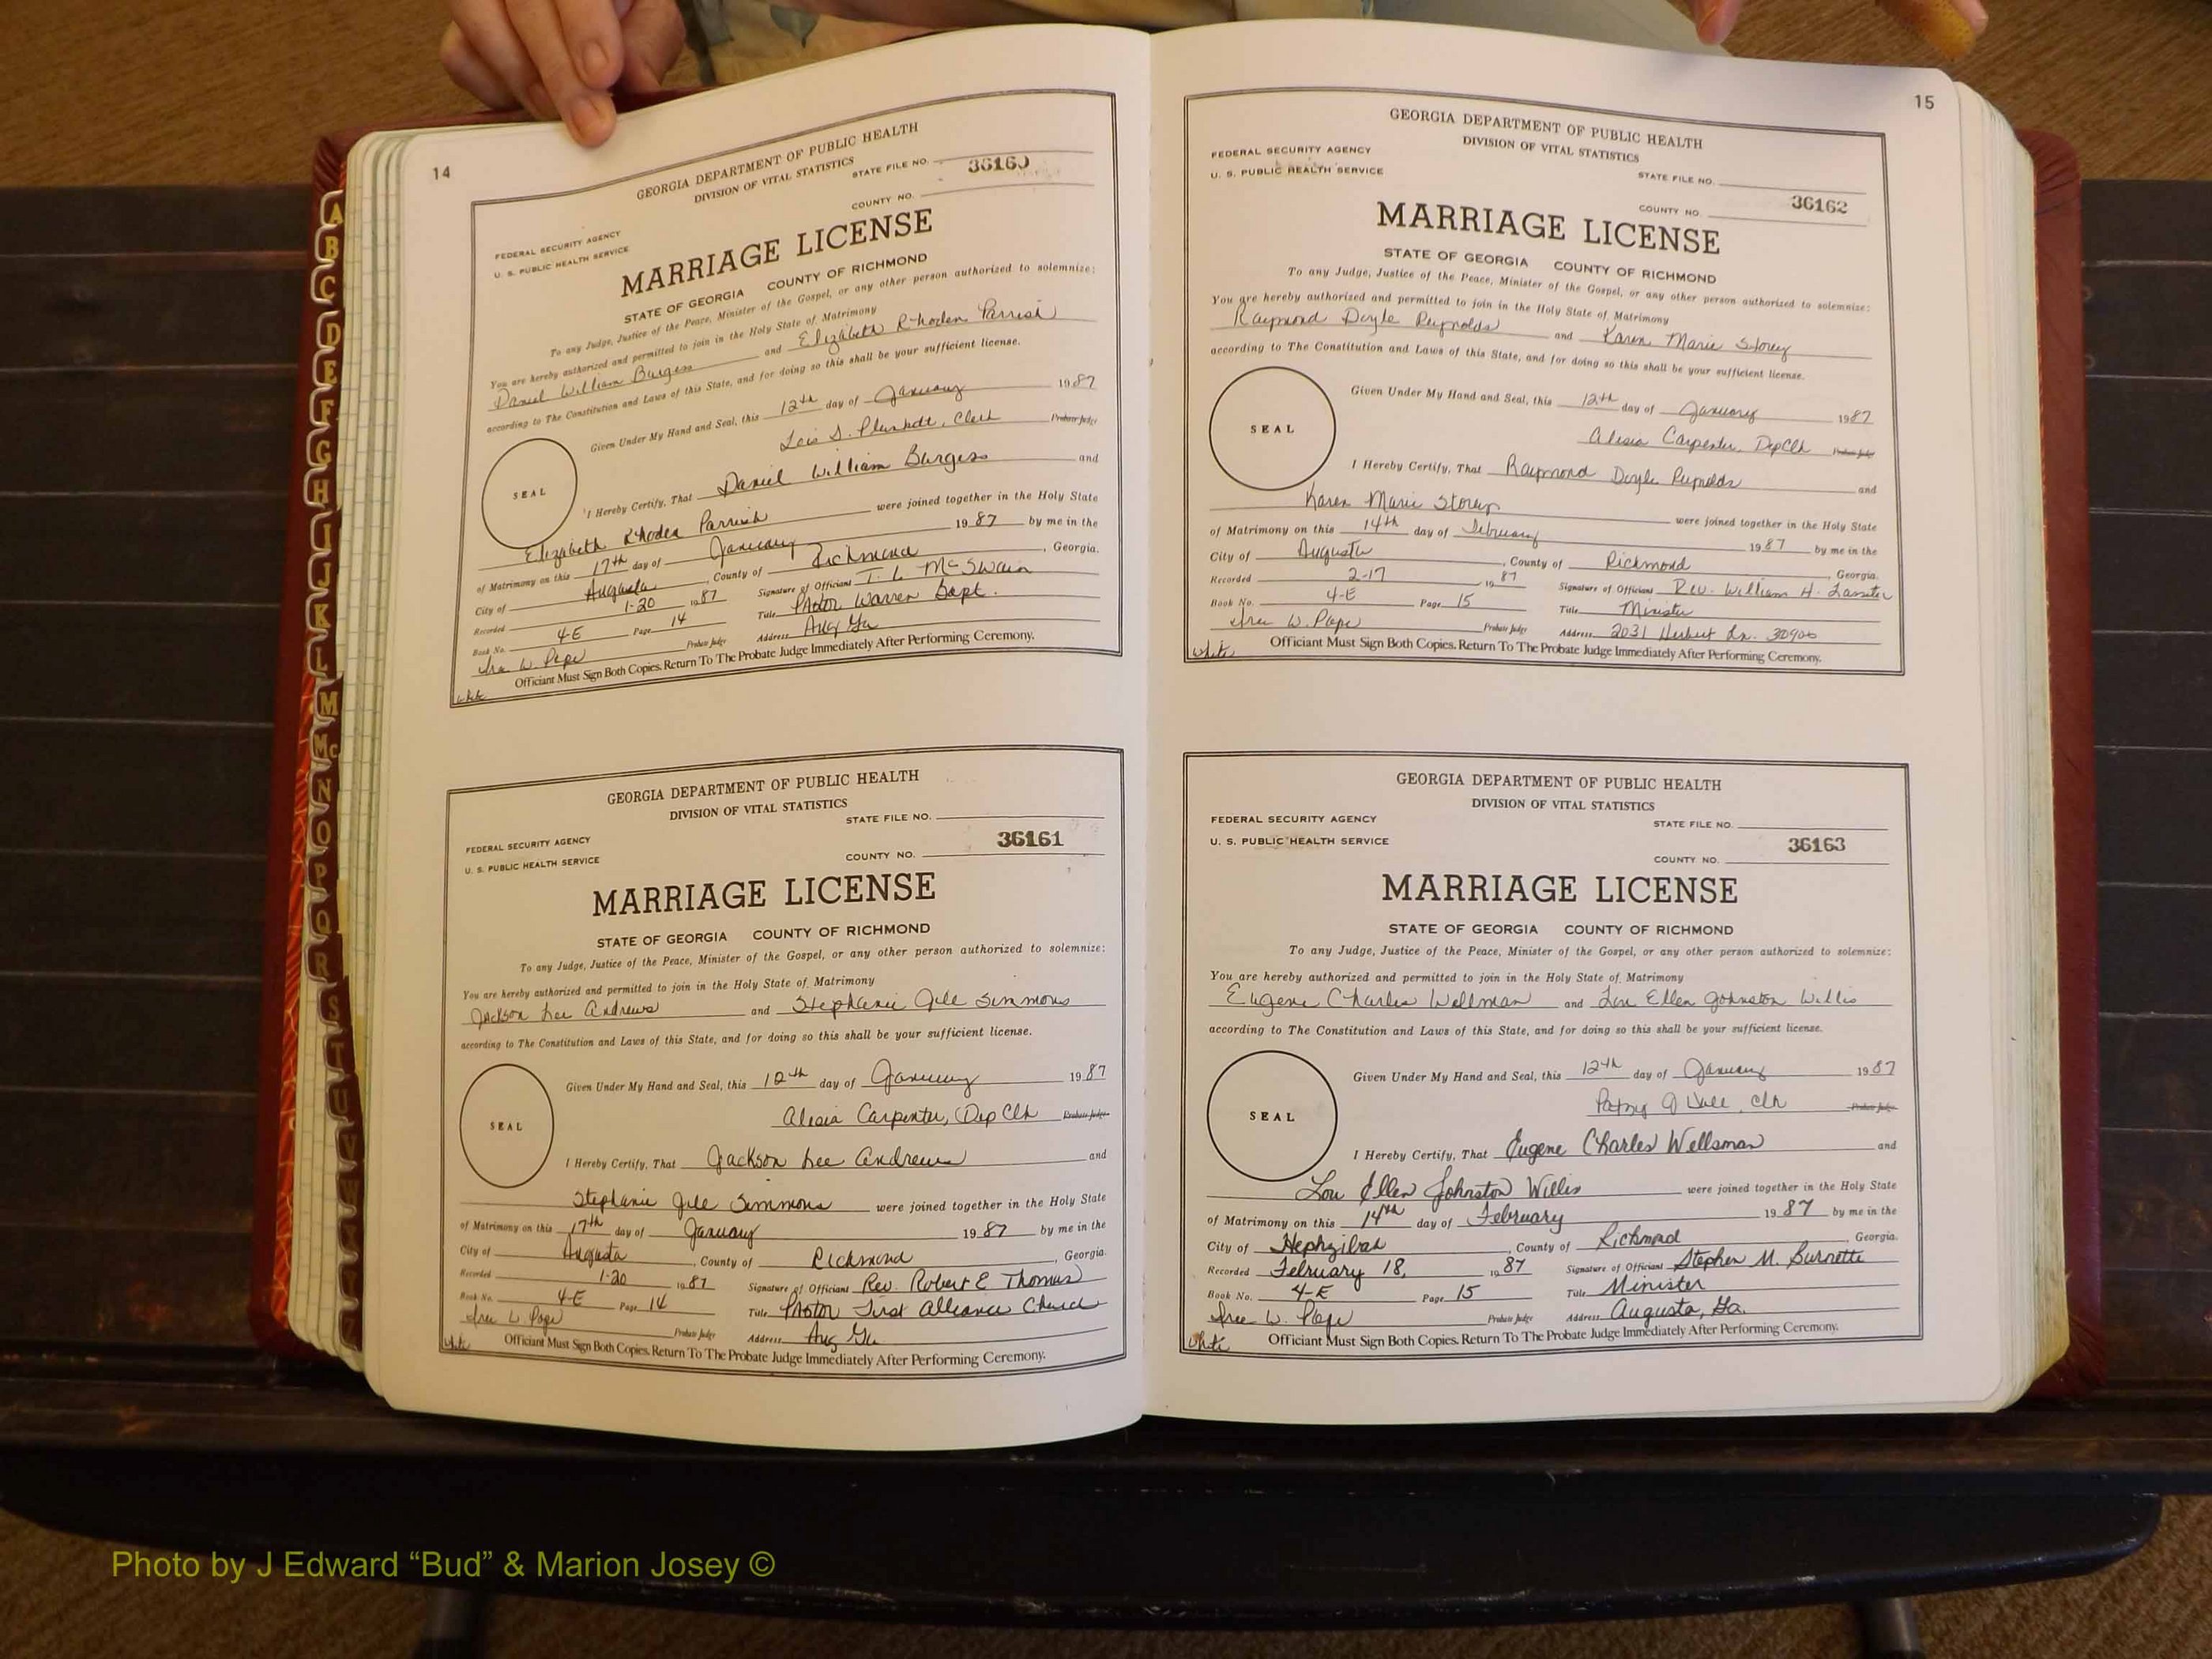 14
GEORGIA DEPARTMENT OF PUBLIC HEALTH
DIVISION OF VITAL STATISTICS
STATE FILE NO. 36160
COUNTY NO.
FEDERAL SECURITY AGENCY
U. S. PUBLIC HEALTH SERVICE
MARRIAGE LICENSE
STATE OF GEORGIA COUNTY OF RICHMOND
To any Judge, Justice of the Peace, Minister of the Gospel, or any other person authorized to solemnize:
You are hereby authorized and permitted to join in the Holy State of Matrimony
Daniel William Burgess and Elizabeth Rhoden Parrish
according to The Constitution and Laws of this State, and for doing so this shall be your sufficient license.
Given Under My Hand and Seal, this 12th day of January 1987
Lois S. Plunkett, Clerk Probate Judge
SEAL
I Hereby Certify, That Daniel William Burgess and
Elizabeth Rhoden Parrish were joined together in the Holy State
of Matrimony on this 17th day of January 1987 by me in the
City of Augusta, County of Richmond, Georgia.
Recorded 1-20 1987 Signature of Officiant T. L. McSwain
Book No. 4-E Page 14 Title Pastor Warren Bapt.
Probate Judge Address Aug Ga
W. Pope
White
Officiant Must Sign Both Copies. Return To The Probate Judge Immediately After Performing Ceremony.
GEORGIA DEPARTMENT OF PUBLIC HEALTH
DIVISION OF VITAL STATISTICS
STATE FILE NO.
FEDERAL SECURITY AGENCY
36161
U. S. PUBLIC HEALTH SERVICE
COUNTY NO.
MARRIAGE LICENSE
STATE OF GEORGIA COUNTY OF RICHMOND
To any Judge, Justice of the Peace, Minister of the Gospel, or any other person authorized to solemnize:
You are hereby authorized and permitted to join in the Holy State of Matrimony
Jackson Lee Andrews and Stephanie Jill Simmons
according to The Constitution and Laws of this State, and for doing so this shall be your sufficient license.
Given Under My Hand and Seal, this 12th day of January 1987
Alesia Carpenter, Dep Clk Probate Judge
SEAL
I Hereby Certify, That Jackson Lee Andrews and
Stephanie Jill Simmons were joined together in the Holy State
of Matrimony on this 17th day of January 1987 by me in the
City of Augusta, County of Richmond, Georgia.
Recorded 1-20 1987 Signature of Officiant Rev. Robert E Thomas
Book No. 4-E Page 14 Title Pastor First Alliance Church
W. Pope Probate Judge Address Aug Ga.
White
Officiant Must Sign Both Copies. Return To The Probate Judge Immediately After Performing Ceremony.
15
GEORGIA DEPARTMENT OF PUBLIC HEALTH
DIVISION OF VITAL STATISTICS
FEDERAL SECURITY AGENCY
U. S. PUBLIC HEALTH SERVICE
STATE FILE NO.
COUNTY NO. 36162
MARRIAGE LICENSE
STATE OF GEORGIA COUNTY OF RICHMOND
To any Judge, Justice of the Peace, Minister of the Gospel, or any other person authorized to solemnize:
You are hereby authorized and permitted to join in the Holy State of Matrimony
Raymond Doyle Reynolds and Karen Marie Storey
according to The Constitution and Laws of this State, and for doing so this shall be your sufficient license.
Given Under My Hand and Seal, this 12th day of January 1987
Alesia Carpenter, Dep Clk Probate Judge
SEAL
I Hereby Certify, That Raymond Doyle Reynolds and
Karen Marie Storey were joined together in the Holy State
of Matrimony on this 14th day of February 1987 by me in the
City of Augusta, County of Richmond, Georgia.
Recorded 2-17 1987 Signature of Officiant Rev. William H. Lassiter
Book No. 4-E Page 15 Title Minister
W. Pope Probate Judge Address 2031 Herbert Ln. 30906
White
Officiant Must Sign Both Copies. Return To The Probate Judge Immediately After Performing Ceremony.
GEORGIA DEPARTMENT OF PUBLIC HEALTH
DIVISION OF VITAL STATISTICS
FEDERAL SECURITY AGENCY
STATE FILE NO.
U. S. PUBLIC HEALTH SERVICE
36163
COUNTY NO.
MARRIAGE LICENSE
STATE OF GEORGIA COUNTY OF RICHMOND
To any Judge, Justice of the Peace, Minister of the Gospel, or any other person authorized to solemnize:
You are hereby authorized and permitted to join in the Holy State of Matrimony
Eugene Charles Wellman and Lou Ellen Johnston Willis
according to The Constitution and Laws of this State, and for doing so this shall be your sufficient license.
Given Under My Hand and Seal, this 12th day of January 1987
Clk Probate Judge
SEAL
I Hereby Certify, That Eugene Charles Wellsman and
Lou Ellen Johnston Willis were joined together in the Holy State
of Matrimony on this 14th day of February 1987 by me in the
City of Hephzibah, County of Richmond, Georgia.
Recorded February 18, 1987 Signature of Officiant Stephen M. Burnette
Book No. 4-E Page 15 Title Minister
W. Pope Probate Judge Address Augusta, Ga.
White
Officiant Must Sign Both Copies. Return To The Probate Judge Immediately After Performing Ceremony.
A
B
C
D
E
F
G
H
I
J
K
L
M
Mc
N
O
P
Q
R
S
T
U
Photo by J Edward “Bud” & Marion Josey ©